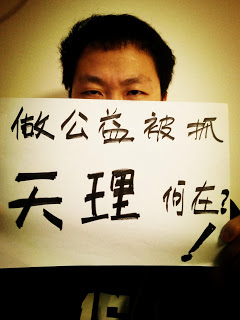 做公益被抓
天理何在?!